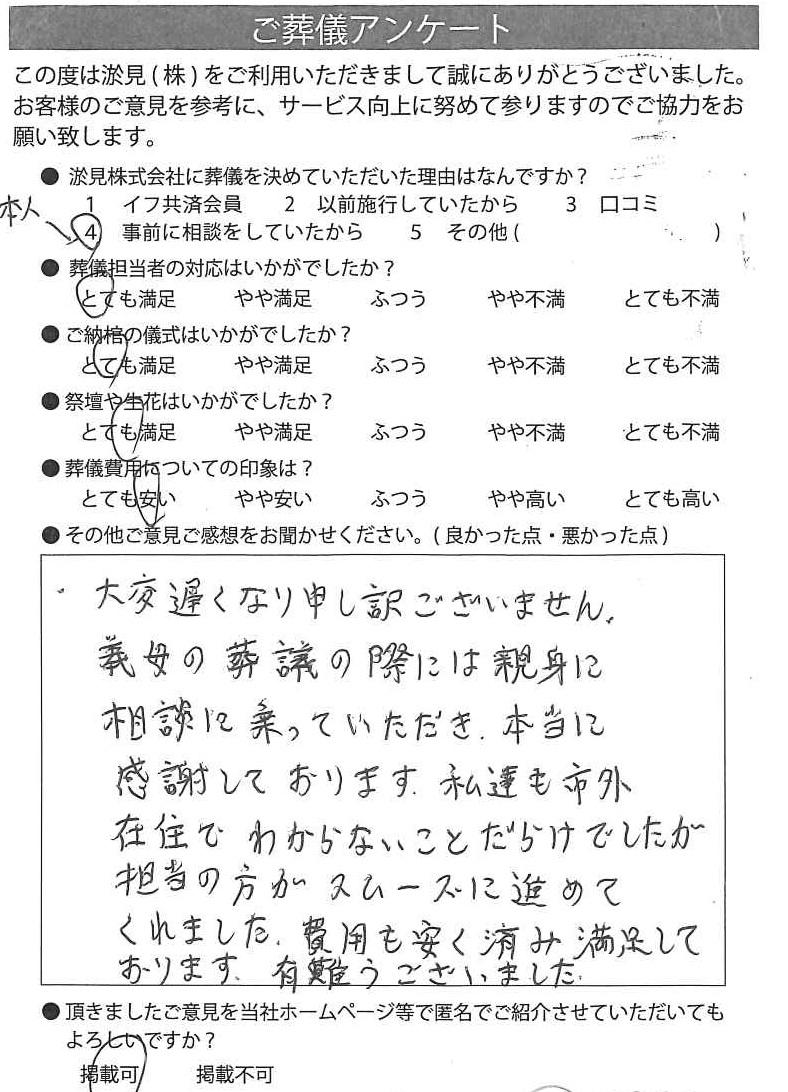 ご葬儀アンケート
この度は淤見(株)をご利用いただきまして誠にありがとうございました。
お客様のご意見を参考に、サービス向上に努めて参りますのでご協力をお
願い致します。
● 淤見株式会社に葬儀を決めていただいた理由はなんですか？
本人
1 イフ共済会員 2 以前施行していたから 3 口コミ
4 事前に相談をしていたから 5 その他 ( )
● 葬儀担当者の対応はいかがでしたか？
とても満足 やや満足 ふつう やや不満 とても不満
● ご納棺の儀式はいかがでしたか？
とても満足 やや満足 ふつう やや不満 とても不満
● 祭壇や生花はいかがでしたか？
とても満足 やや満足 ふつう やや不満 とても不満
● 葬儀費用についての印象は？
とても安い やや安い ふつう やや高い とても高い
● その他ご意見ご感想をお聞かせください。( 良かった点・悪かった点 )
・大変遅くなり申し訳ございません。
義母の葬議の際には親身に
相談に乗っていただき、本当に
感謝しております。私達も市外
在住でわからないことだらけでしたが
担当の方がスムーズに進めて
くれました。費用も安く済み満足して
おります。有難うございました。
● 頂きましたご意見を当社ホームページ等で匿名でご紹介させていただいても
よろしいですか？
掲載可 掲載不可